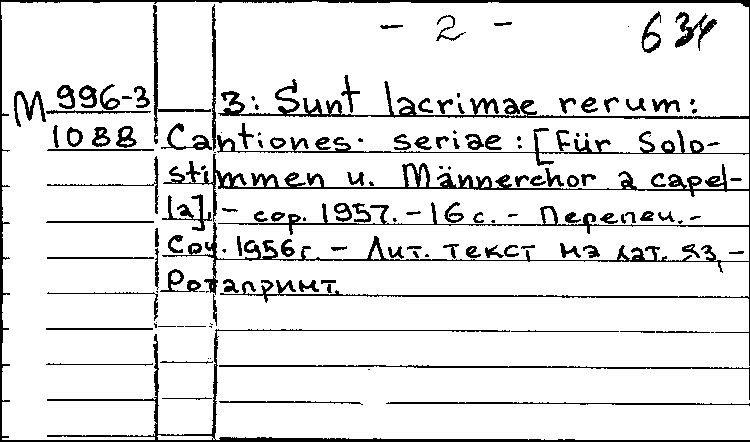 - 2 -
634
M 996-3
1088
3: Sunt lacrimae rerum:
Cantiones seriae: [Für Solo-
stimmen u. Männerchor a capel-
la]. - cop. 1957. - 16 с. - Перепеч. -
Соч. 1956г. - Лит. текст на лат. яз. -
Ротапринт.